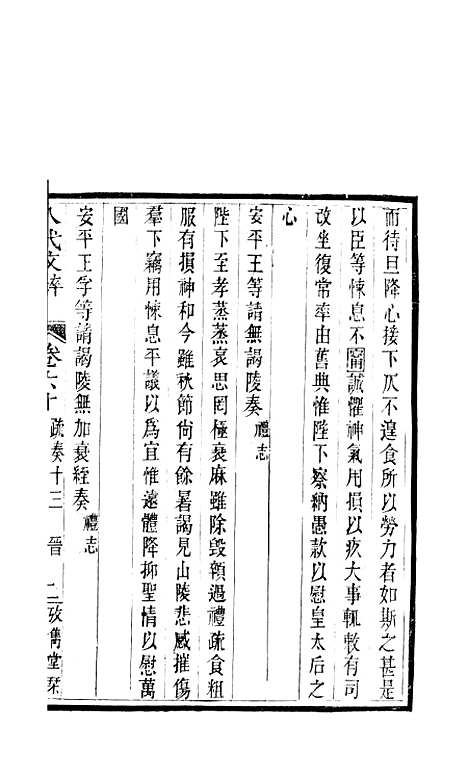 而待旦降心接下仄不遑食所以勞力者如斯之甚是
以臣等悚息不寧誠懼神氣用損以疚大事輒敕有司
改坐復常率由舊典惟陛下察納愚款以慰皇太后之
心
安平王等請無謁陵奏 禮志
陛下至孝蒸蒸哀思罔極衰麻雖除毀顇過禮疏食粗
服有損神和今雖秋節尚有餘暑謁見山陵悲感摧傷
羣下竊用悚息平議以爲宜惟遠體降抑聖情以慰萬
國
安平王孚等請謁陵無加衰絰奏 禮志
八代文粹 卷六十 疏奏十三 晉 上 二 攷雋堂栞